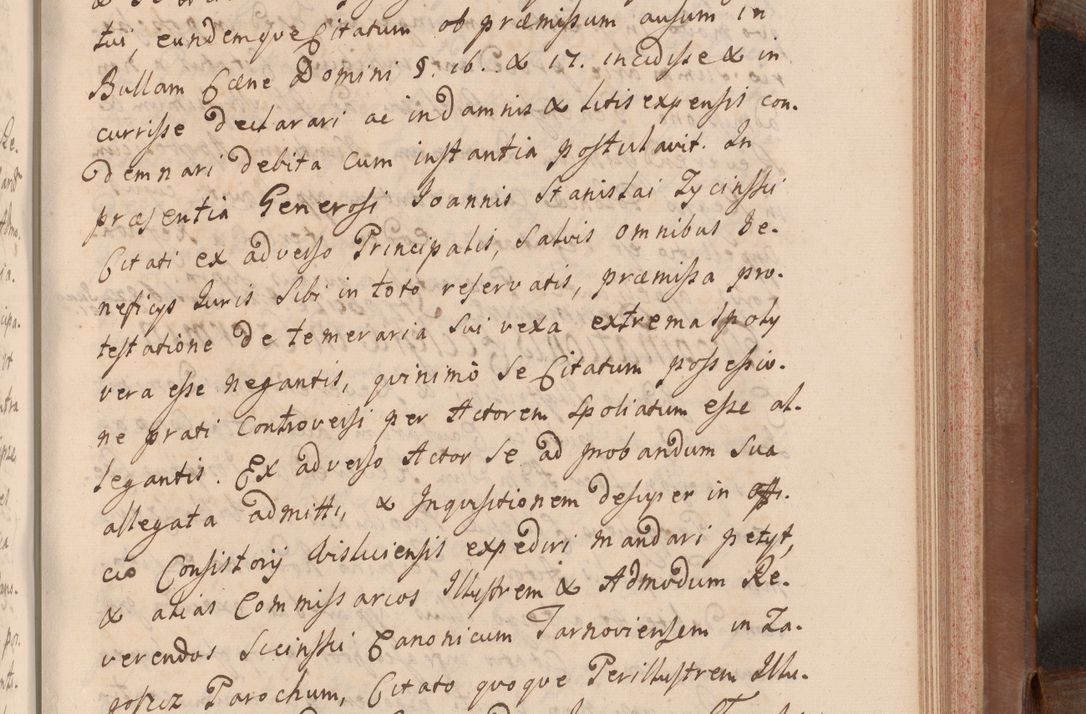 tui, eundemque Citatum ob præmissum ausum in
Bullam Cæne Domini §. 16. & 17. incidisse & in
currisse declarari ac in damnis & litis expensis con-
demnari debita cum instantia postulavit. In
præsentia Generosi Joannis Stanislai Zycinski
Citati ex adverso Principalis, salvis omnibus be-
neficijs Juris sibi in toto reservatis, præmissa pro-
testatione de temeraria sui vexa extrema spolij
vera esse negantis, quinimò se Citatum possessio-
ne prati Controversi per Actorem spoliatum esse al-
legantis. Ex adverso Actor se ad probandum sua
allegata admitti, & Inquisitionem desuper in offi-
cio Consistorij Visliciensis expediri mandari petijt,
& alias Commissarios Illustrem & Admodum Re-
verendos Siecinski Canonicum Tarnoviensem in Za-
goscz Parochum, Citato quoque Perillustrem Illu-